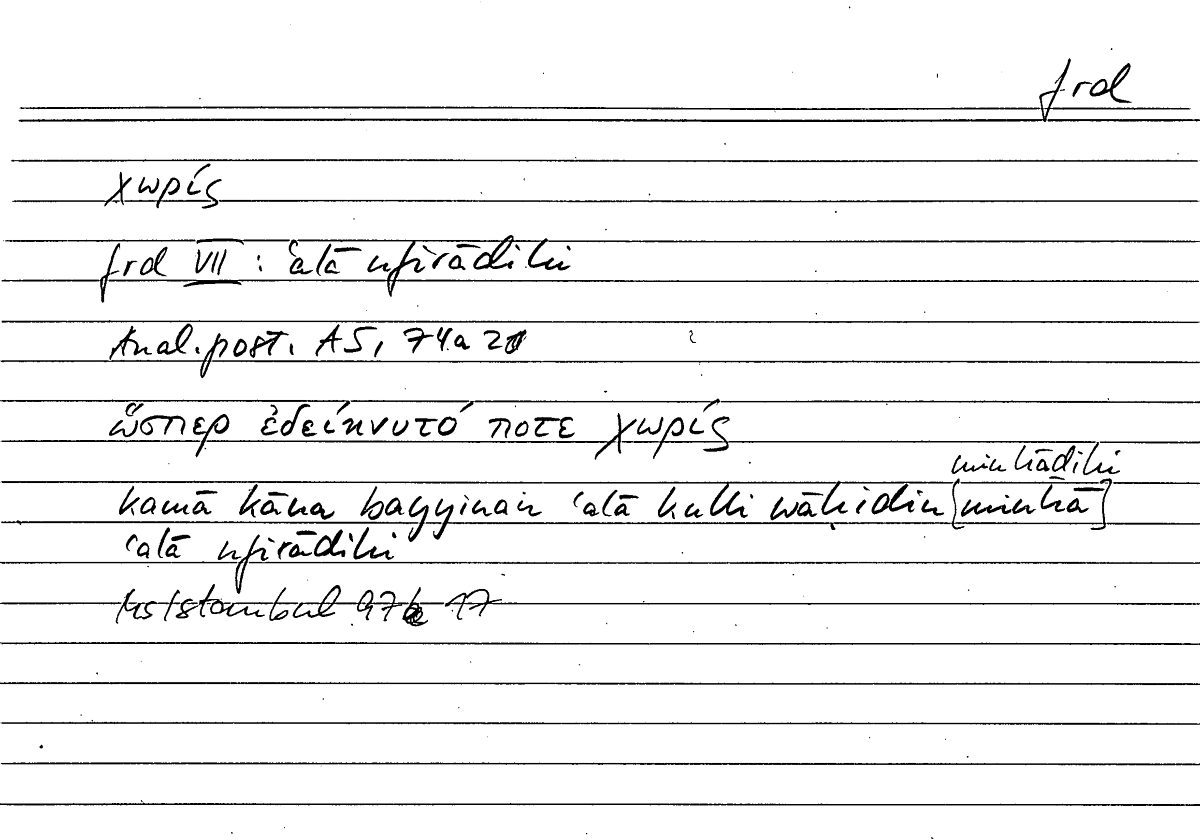 frd
χωρίς
frd VII : ʿalā nfirādihi
Anal. post. A5, 74a 20
ὥσπερ ἐδείκνυτό ποτε χωρίς
min hādihi
kamā kāna bayyinan ʿalā kulli wāḥidin [minhā]
ʿalā nfirādihi
Ms Istambul 97 17